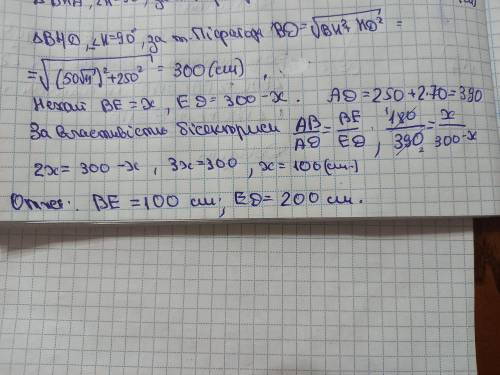 △BHD, ∠H=90°, за т. Піфагора BD=√BH²+HD² =
=√(50√11)²+250² = 300 (см)
Нехай BE=x, ED=300-x. AD=250+2·70=390
За властивість бісектриси AB/AD=BE/ED; 180/390=x/300-x
2x=300-x, 3x=300, x=100 (см)
BE=100 см; ED=200 см.